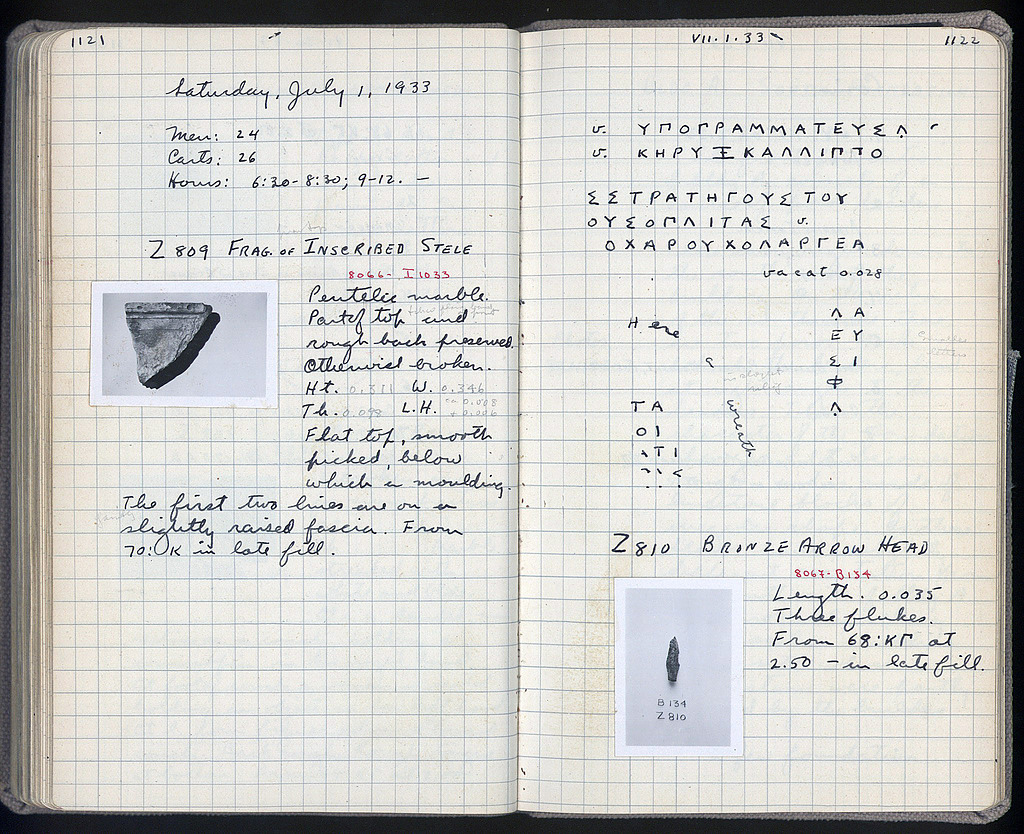 1121
Saturday, July 1, 1933
Men: 24
Carts: 26
Hours: 6:30-8:30; 9-12. —
Z 809 FRAG. OF INSCRIBED STELE
8066- I 1033
Pentelic marble.
Part of top and
rough back preserved.
Otherwise broken.
Ht. 0.311 W. 0.346
Th. 0.098 L.H. ca 0.008
+ 0.006
Flat top, smooth
picked, below
which a moulding.
The first two lines are on a
slightly raised fascia. From
70:ΙΚ in late fill.
VII.1.33
1122
v. ΥΠΟΓΡΑΜΜΑΤΕΥΣΛ
v. ΚΗΡΥΞΚΑΛΛΙΠΠΟ
ΣΣΤΡΑΤΗΓΟΥΣΤΟΥ
ΟΥΣΟΠΛΙΤΑΣ v.
ΟΧΑΡΟΥΧΟΛΑΡΓΕΑ
vacat 0.028
Here
a
wreath
ΛΑ
ΕΥ
ΣΙ
Φ
Λ
ΤΑ
ΟΙ
ΛΤΙ
Z 810 BRONZE ARROW HEAD
8067-B134
Length. 0.035
Three flukes.
From 68:ΚΓ at
2.50 — in late fill.
B 134
Z 810